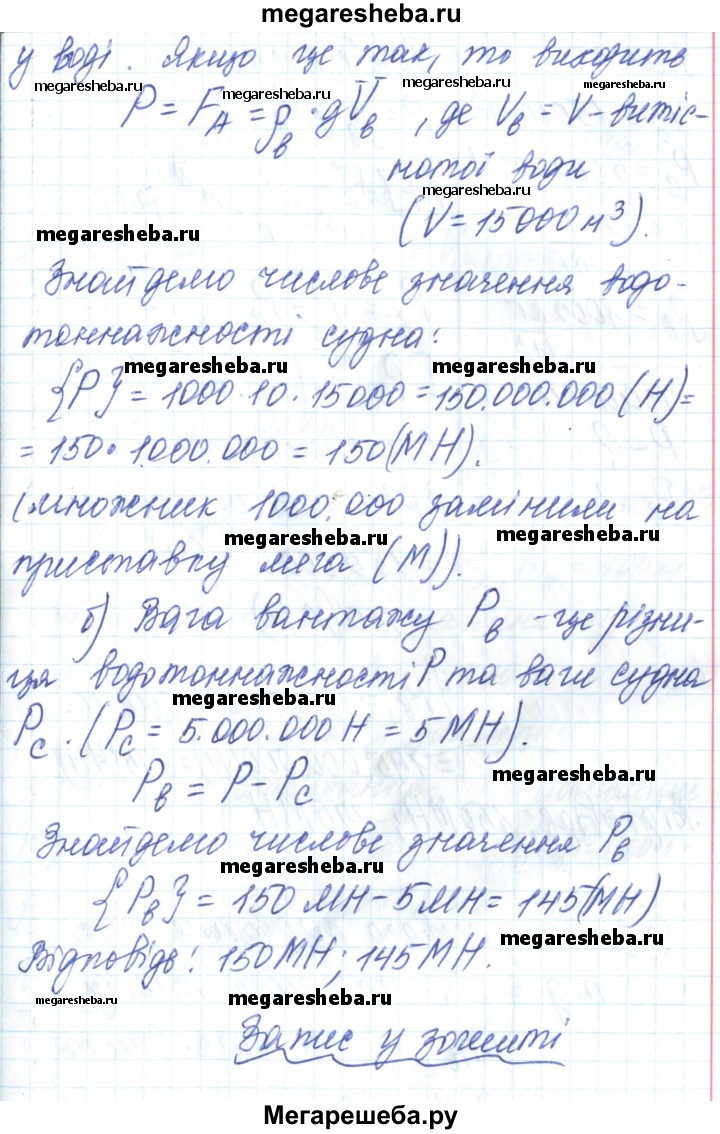 megaresheba.ru
у воді. Якщо це так, то виходить
megaresheba.ru megaresheba.ru
P = F_A = ρ_в · gV_в, де V_в = V - витіс-
megaresheba.ru megaresheba.ru
натої води
megaresheba.ru
(V = 15000 м³).
megaresheba.ru
Знайдемо числове значення водо-
тоннажності судна:
megaresheba.ru megaresheba.ru
{P} = 1000·10·15000 = 150.000.000 (Н) =
= 150·1.000.000 = 150 (МН).
(множник 1000.000 замінили на
megaresheba.ru megaresheba.ru
приставку мега (М)).
б) Вага вантажу P_в - це різни-
ця водотоннажності P та ваги судна
megaresheba.ru
P_с. (P_с = 5.000.000 Н = 5 МН).
megaresheba.ru
P_в = P - P_с
Знайдемо числове значення P_в
megaresheba.ru
{P_в} = 150 МН - 5 МН = 145 (МН)
megaresheba.ru
Відповідь: 150 МН; 145 МН.
megaresheba.ru megaresheba.ru
Запис у зошиті
Мегарешеба.ру